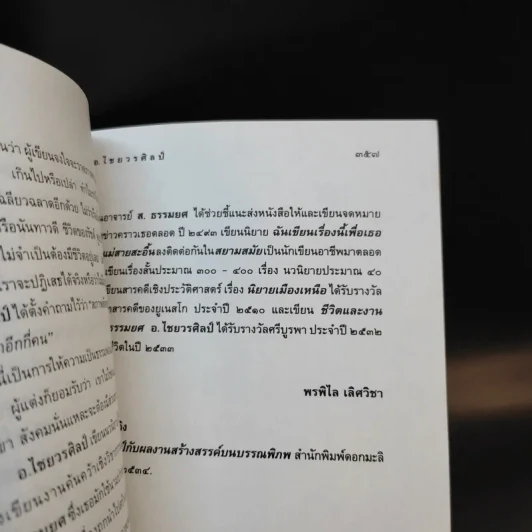 นว่า ผู้เขียนจงใจจะ
เกินไปหรือเปล่า
ฉลียวฉลาดอีกด้วย
รือนันทาวดี ชีวิตของ
ไม่จำเป็นต้องมีชีวิตอยู่
ราจะปฏิเสธได้จริงหรือ
ป์ ได้ตั้งคำถามไว้ว่า
าอีกกี่คน"
นี่เป็นการให้ความเป็นธรรม
ผู้แต่งก็ยอมรับว่า เขาไม่
ยา สังคมนั่นแหละจะต้อง
อ.ไชยวรศิลป์ เขียน
งเขียนงานค้นคว้าเชิง
มยศ ซึ่งเธอมักใช้นาม
อ.ไชยวรศิลป์ ๓๕๗
นอาจารย์ ส. ธรรมยศ ได้ช่วยชี้แนะส่งหนังสือให้และเขียนจดหมาย
ข่าวคราวเธอตลอด ปี ๒๔๙๓ เขียนนิยาย ฉันเขียนเรื่องนี้เพื่อเธอ
แม่สายสะอื้น ลงติดต่อกันในสยามสมัย เป็นนักเขียนอาชีพมาตลอด
เขียนเรื่องสั้นประมาณ ๓๐๐ - ๔๐๐ เรื่อง นวนิยายประมาณ ๔๐
ขียนสารคดีเชิงประวัติศาสตร์ เรื่อง นิยายเมืองเหนือ ได้รับรางวัล
สารคดีของยูเนสโก ประจำปี ๒๕๑๐ และเขียน ชีวิตและงาน
ธรรมยศ อ.ไชยวรศิลป์ ได้รับรางวัลศรีบูรพา ประจำปี ๒๕๓๒
ชีวิตในปี ๒๕๓๓
พรพิไล เลิศวิชา
ิง
ป์กับผลงานสร้างสรรค์บนบรรณพิภพ สำนักพิมพ์ดอกมะลิ
๒๕๓๔.